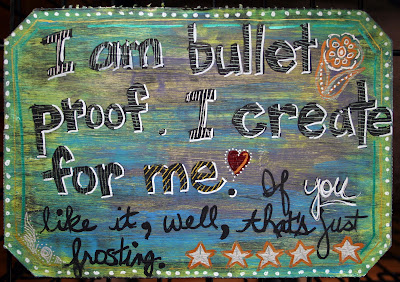 I am bullet
proof. I create
for me. If you
like it, well, that's just
frosting.